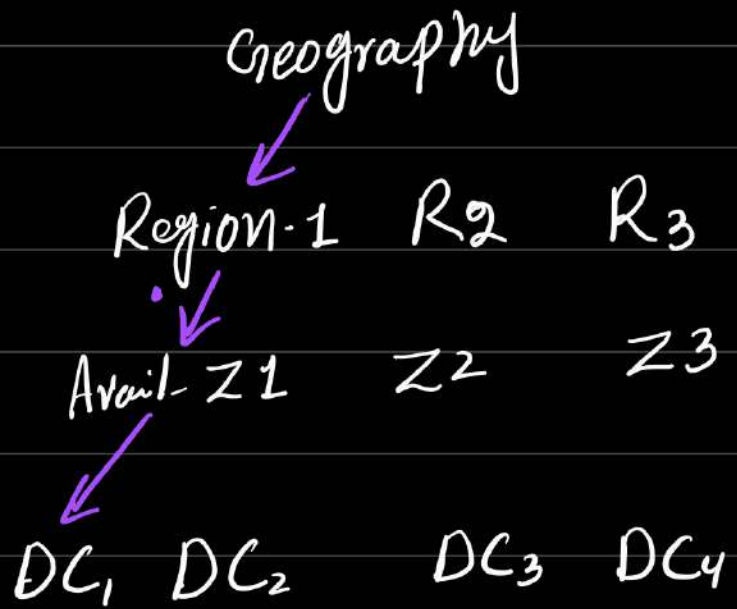 Geography
Region-1 R2 R3
Avail- Z1 Z2 Z3
DC₁ DC₂ DC₃ DC₄